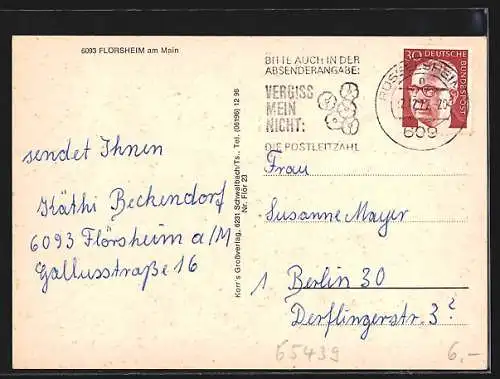 6093 FLÖRSHEIM am Main
BITTE AUCH IN DER
ABSENDERANGABE:
VERGISS
MEIN
NICHT:
DIE POSTLEITZAHL
30 DEUTSCHE
BUNDESPOST
RÜSSELSHEIM
609
sendet Ihnen
Käthi Beckendorf
6093 Flörsheim a/M
Gallusstraße 16
Korr's Großverlag, 6231 Schwalbach/Ts., Tel. (06196) 12 96
Nr. Flör 23
Frau
Susanne Mayer
1 Berlin 30
Derflingerstr. 3
65439
6,-